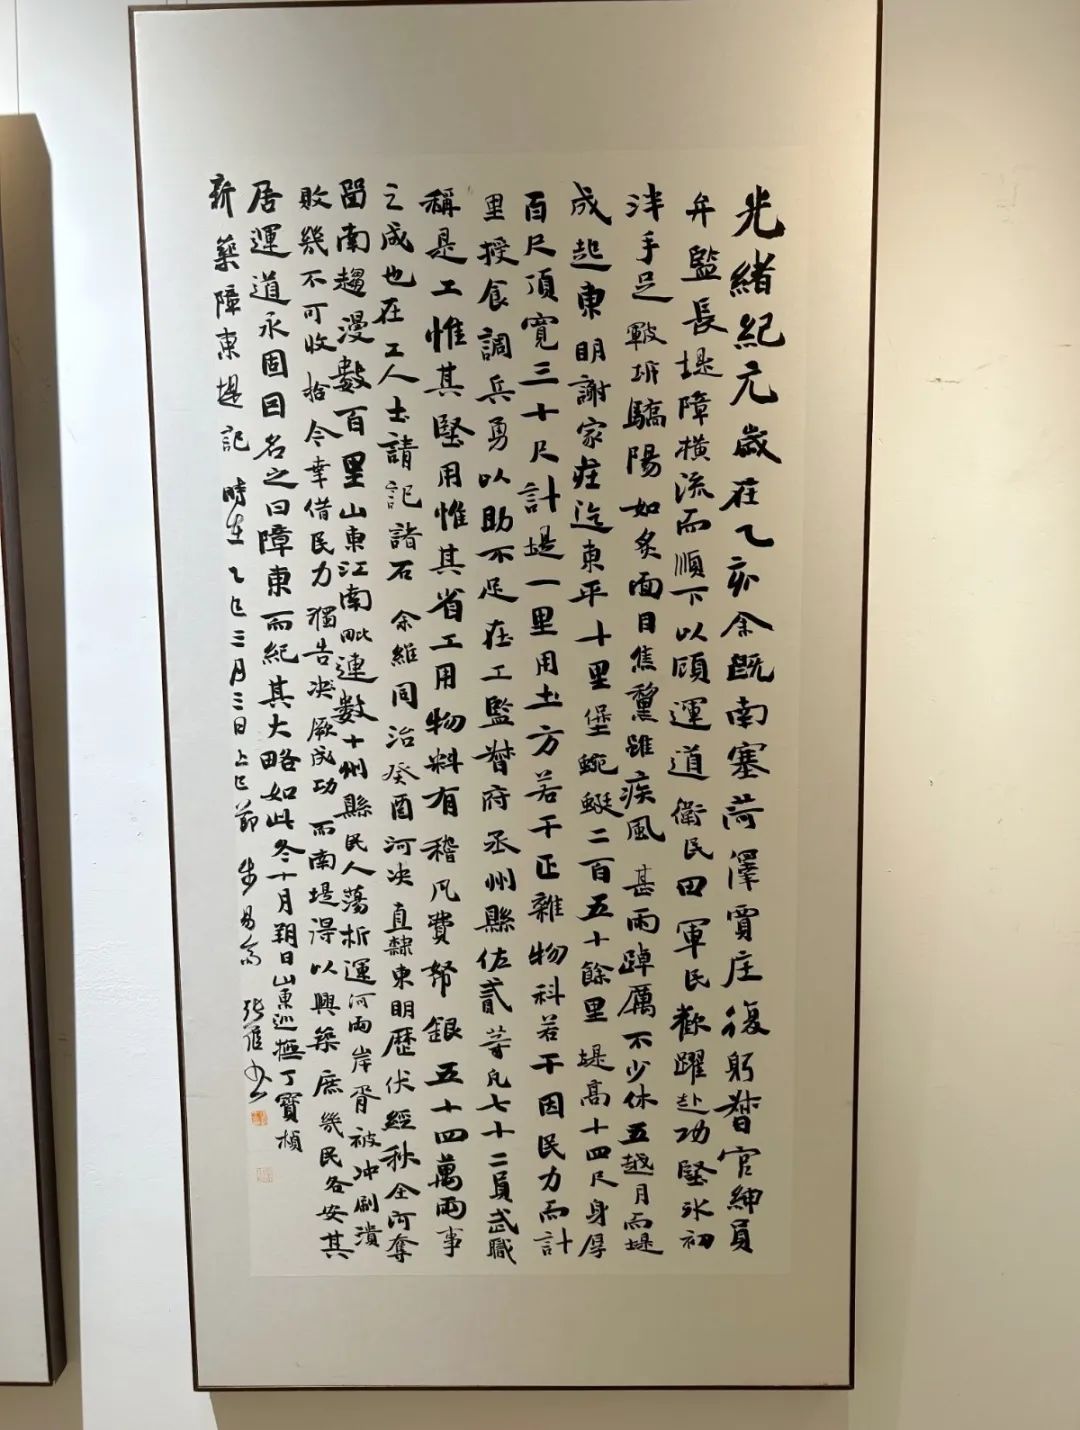 光緒紀元歲在乙亥余既南塞菏澤賈庄復躬督官紳員
弁監長堤障橫流而順下以顧運道衛民田軍民歡躍赴功堅冰初
泮手足皸坼驕陽如炙面目焦黧雖疾風甚雨踔厲不少休五越月而堤
成起東明謝家庄迄東平十里堡蜿蜒二百五十餘里堤高十四尺身厚
百尺頂寬三十尺計堤一里用土方若干正雜物料若干因民力而計
里授食調兵勇以助不足在工監督府丞州縣佐貳等凡七十二員武職
稱是工惟其堅用惟其省工用物料有稽凡費帑銀五十四萬兩事
之成也在工人士請記諸石余維同治癸酉河决直隸東明歷伏經秋全河奪
溜南趨漫數百里山東江南毗連數十州縣民人蕩析運河兩岸胥被冲刷潰
敗幾不可收拾今幸借民力獨告决厥成功而南堤得以興築庶幾民各安其
居運道永固因名之曰障東而紀其大略如此冬十月朔日山東巡撫丁寶楨
新築障東堤記 時在乙巳三月三日上巳節 步易齋 張 書